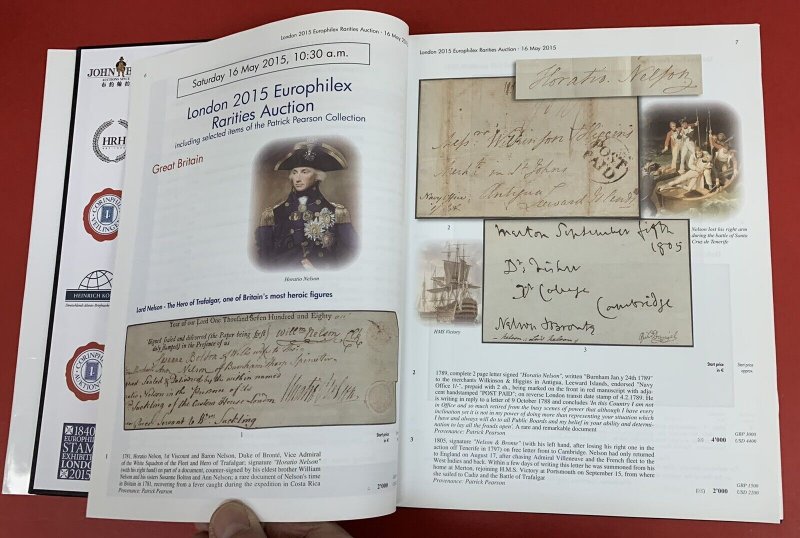 JOHN
HRH
CORINPHILA
VEILINGEN
HEINRICH KÖ
CORINPHILA
AUKTIONEN
1840
EUROPHILEX
STAM
EXHIBITION
LONDON
2015
London 2015 Europhilex Rarities Auction · 16 May 2015
6
Saturday 16 May 2015, 10:30 a.m.
London 2015 Europhilex
Rarities Auction
including selected items of the Patrick Pearson Collection
Great Britain
Horatio Nelson
Lord Nelson - The Hero of Trafalgar, one of Britain's most heroic figures
Year of our Lord One Thousand Seven Hundred and Eighty one
Signed Sealed and delivered (the Paper being first
duly stamped) in the Presence of us
Willm Nelson
1
Start price
in €
1
1781, Horatio Nelson, 1st Viscount and Baron Nelson, Duke of Brontë, Vice Admiral
of the White Squadron of the Fleet and Hero of Trafalgar; signature "Horatio Nelson"
(with his right hand) on part of a document, counter-signed by his eldest brother William
Nelson and his sisters Susanne Bolton and Ann Nelson; a rare document of Nelson's time
in Britain in 1781, recovering from a fever caught during the expedition in Costa Rica
Provenance: Patrick Pearson.
2'000
London 2015 Europhilex Rarities Auction · 16 May 2015
7
Horatio Nelson
Messrs Wilkinson & Higgins
Merchts in St Johns
Antigua
Leeward Islands
Navy Office
POST
PAID
Nelson lost his right arm
during the battle of Santa
Cruz de Tenerife
2
HMS Victory
Merton September fifth
1805
Dr. Fisher
Cambridge
Nelson & Bronte
3
Start price
in €
Start price
approx.
2
1789, complete 2 page letter signed "Horatio Nelson", written "Burnham Jan.y 24th 1789"
to the merchants Wilkinson & Higgins in Antigua, Leeward Islands, endorsed "Navy
Office 1/-", prepaid with 2 sh., being marked on the front in red manuscript with adja-
cent handstamped "POST PAID"; on reverse London transit date stamp of 4.2.1789. He
is writing in reply to a letter of 9 October 1788 and concludes 'In this Country I am not
in Office and so much retired from the busy scenes of power that although I have every
inclination yet it is not in my power of doing more than representing your situation which
I have and always do to the Public Boards and my belief in your ability and determi-
nation to lay all the frauds open'. A rare and remarkable document
Provenance: Patrick Pearson.
4'000
GBP 3000
USD 4400
3
1805, signature "Nelson & Bronte" (with his left hand, after losing his right one in the
action off Tenerife in 1797) on free letter front to Cambridge. Nelson had only returned
to England on August 17, after chasing Admiral Villeneuve and the French fleet to the
West Indies and back. Within a few days of writing this letter he was summoned from his
home at Merton, rejoining H.M.S. Victory at Portsmouth on September 15, from where
she sailed to Cadiz and the Battle of Trafalgar
Provenance: Patrick Pearson.
2'000
GBP 1500
USD 2200